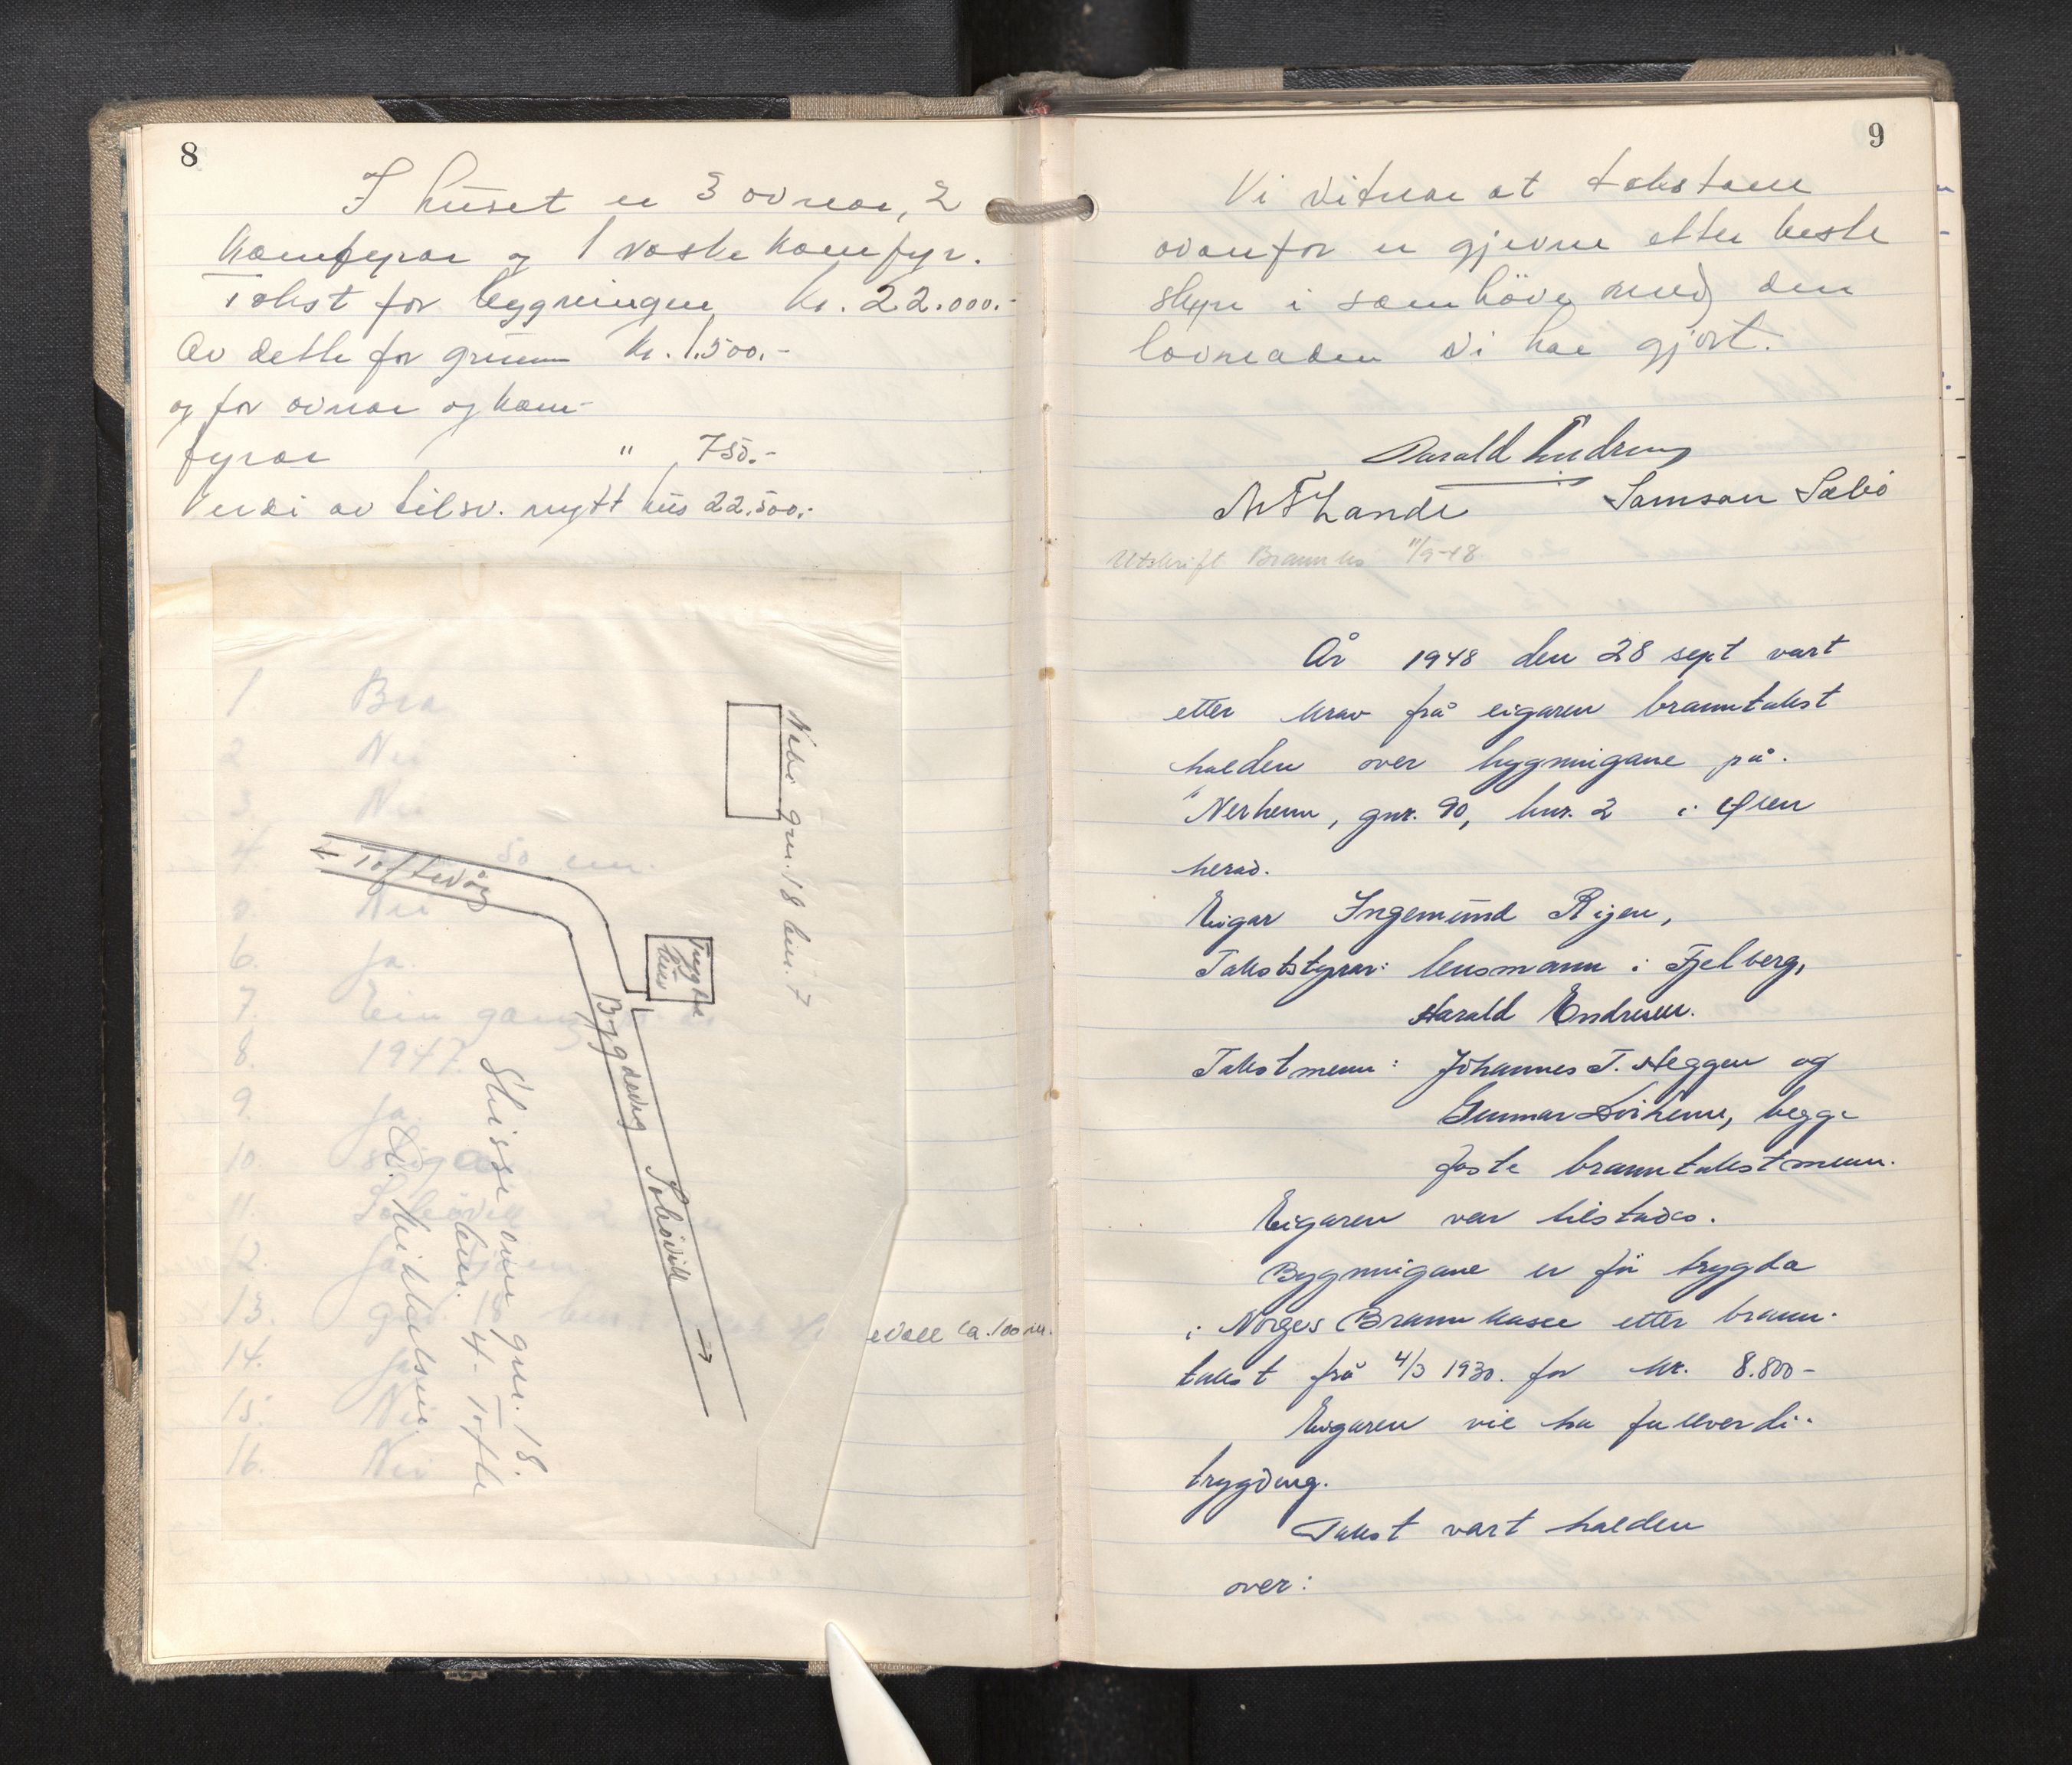 8
I huset er 3 ovnar, 2
komfyrar og 1 vaskekomfyr.
Takst for bygningen kr. 22.000.-
Av dette for grunn kr. 1.500.-
og for ovnar og kom-
fyrar " 750.-
Verdi av tilsv. nytt hus 22.500.-
1. Bra
2 Nei
3. Nei
4. 50 cm.
5. Nei
6. Ja.
7. Ein gang
8. 1947.
9. Ja.
10.
11.
12. Ja
13.
14. Ja
15. Nei
16. Nei
evall ca. 100 m.
Nebø gnr. 18 bnr. 7
← Toftevåg
Trygda
hus
Bygdeveg Sebövik →
Skisse over gnr. 18.
bnr. 4 - Tofte
A. Mikkelsen.
9
Vi vitnar at takstane
ovanfor er gjevne etter beste
skyn i samhöve med den
lovnaden vi har gjort.
Harald Endresen
M T Lande Samson Sæbö
Utskrift Brannks 11/9-48
År 1948 den 28 sept vart
etter krav frå eigaren branntakst
halden over bygningane på
"Nerheim, gnr. 90, bnr. 2 i Ølen
herad.
Eigar Ingemund Rijen,
Takststyrar: lensmann i Fjelberg,
Harald Endresen.
Takstmenn: Johannes T. Heggen og
Gunnar Sviheim, begge
faste branntakstmenn.
Eigaren var tilstades.
Bygningane er för trygda
i Norges Brannkasse etter brann-
takst frå 4/3 1930. for kr. 8.800-
Eigaren vil ha fullverdi-
trygding.
Takst vart halden
over: